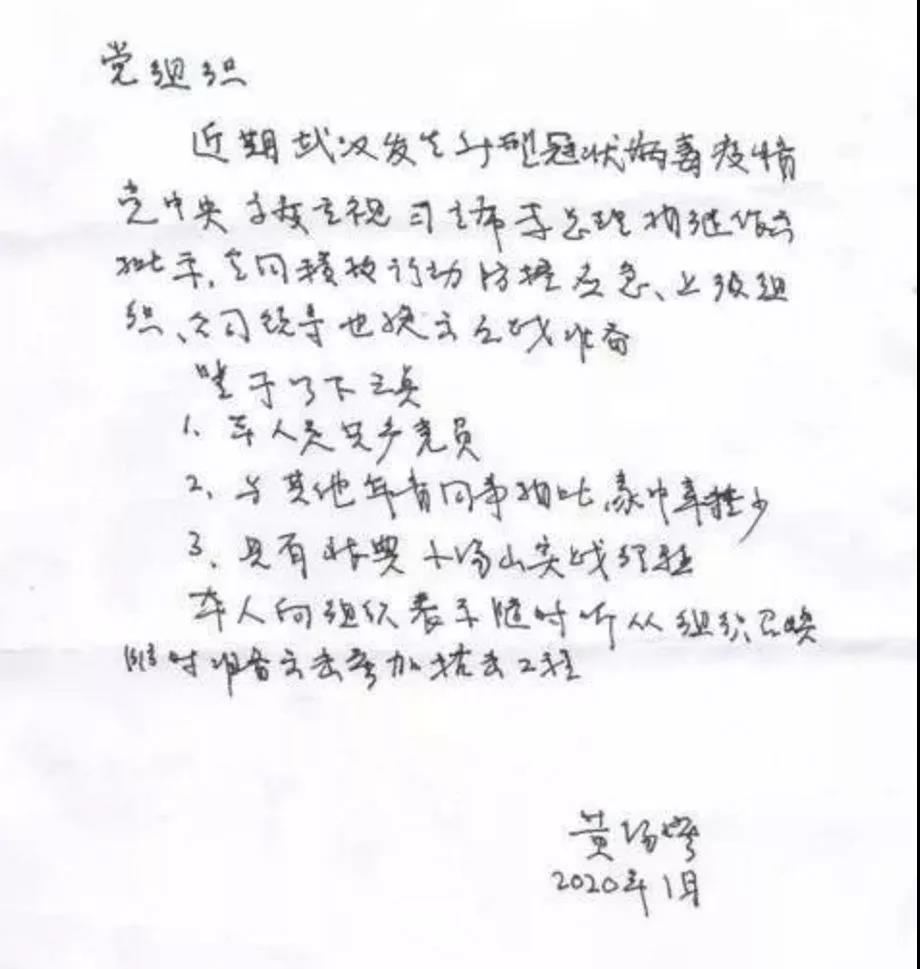 党组织
近期武汉发生新型冠状病毒疫情
党中央高度重视 习主席李总理相继作出
批示,全国积极行动防控应急、上级组
织、公司领导也做出应战准备
鉴于以下三点
1、本人是党员
2、与其他年青同事相比,家中牵挂少
3、具有 小汤山实战经验
本人向组织表示随时听从组织召唤
随时准备出去参加抗击工程
黄
2020年1月